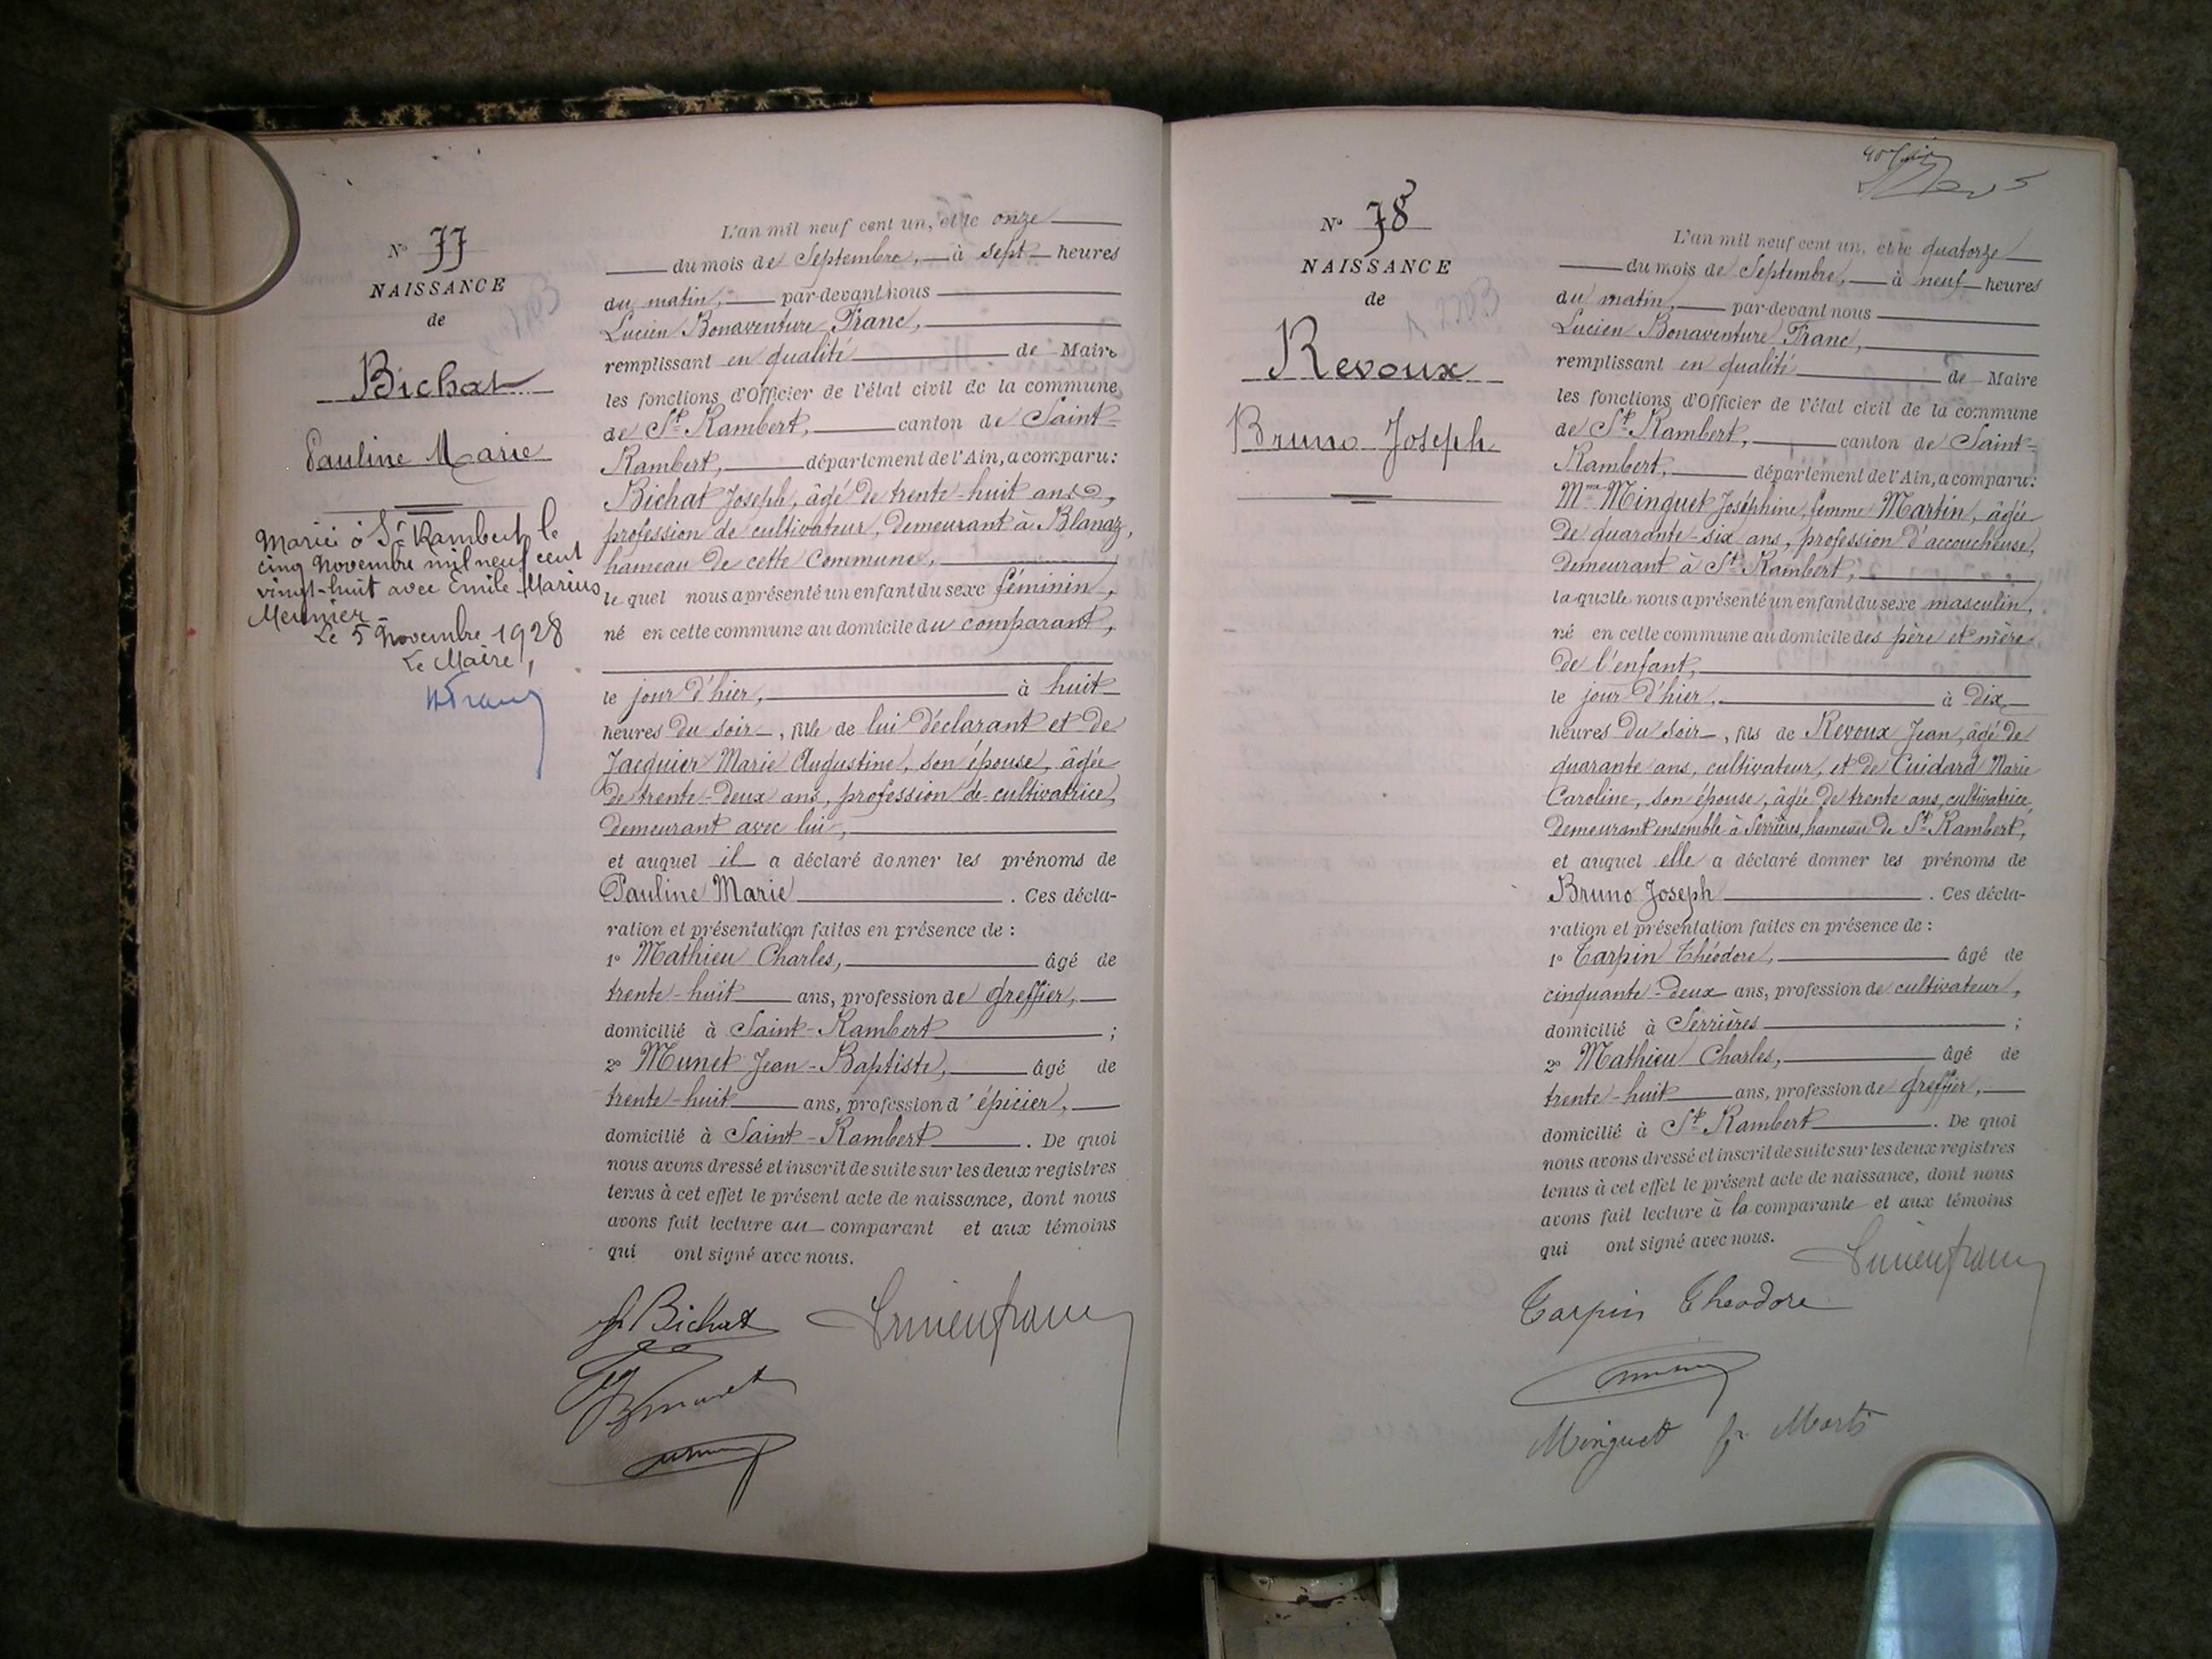 N° 77
NAISSANCE
de
Bichat
Pauline Marie
Mariée à St Rambert le
cinq novembre mil neuf cent
vingt-huit avec Emile Marius
Meunier -
Le 5 Novembre 1928
Le Maire,
L'an mil neuf cent un, et le onze
du mois de Septembre, à sept heures
du matin, par-devant nous
Lucien Bonaventure Franc,
remplissant en qualité de Maire
les fonctions d'Officier de l'état civil de la commune
de St Rambert, canton de Saint-
Rambert, département de l'Ain, a comparu:
Bichat Joseph, âgé de trente-huit ans,
profession de cultivateur, demeurant à Blanaz,
hameau de cette Commune,
le quel nous a présenté un enfant du sexe féminin,
né en cette commune au domicile du comparant,
le jour d'hier, à huit
heures du soir, fille de lui déclarant et de
Jacquier Marie Augustine, son épouse, âgée
de trente-deux ans, profession de cultivatrice,
demeurant avec lui,
et auquel il a déclaré donner les prénoms de
Pauline Marie. Ces décla-
ration et présentation faites en présence de :
1° Mathieu Charles, âgé de
trente-huit ans, profession de greffier,
domicilié à Saint-Rambert ;
2° Munet Jean-Baptiste, âgé de
trente-huit ans, profession d'épicier,
domicilié à Saint-Rambert. De quoi
nous avons dressé et inscrit de suite sur les deux registres
tenus à cet effet le présent acte de naissance, dont nous
avons fait lecture au comparant et aux témoins
qui ont signé avec nous.
J. Bichat Lucien franc
N° 78
NAISSANCE
de
Revoux
Bruno Joseph
L'an mil neuf cent un, et le quatorze
du mois de Septembre, à neuf heures
du matin, par-devant nous
Lucien Bonaventure Franc,
remplissant en qualité de Maire
les fonctions d'Officier de l'état civil de la commune
de St Rambert, canton de Saint-
Rambert, département de l'Ain, a comparu:
Mme Minguet Joséphine, femme Martin, âgée
de quarante-six ans, profession d'accoucheuse,
demeurant à St Rambert,
la quelle nous a présenté un enfant du sexe masculin,
né en cette commune au domicile des père et mère
de l'enfant,
le jour d'hier, à dix
heures du soir, fils de Revoux Jean, âgé de
quarante ans, cultivateur, et de Cuidard Marie
Caroline, son épouse, âgée de trente ans, cultivatrice,
demeurant ensemble à Serrières, hameau de St Rambert,
et auquel elle a déclaré donner les prénoms de
Bruno Joseph. Ces décla-
ration et présentation faites en présence de :
1° Tarpin Théodore, âgé de
cinquante-deux ans, profession de cultivateur,
domicilié à Serrières ;
2° Mathieu Charles, âgé de
trente-huit ans, profession de greffier,
domicilié à St Rambert. De quoi
nous avons dressé et inscrit de suite sur les deux registres
tenus à cet effet le présent acte de naissance, dont nous
avons fait lecture à la comparante et aux témoins
qui ont signé avec nous.
Lucien franc
Tarpin Theodore
Minguet f. Martin